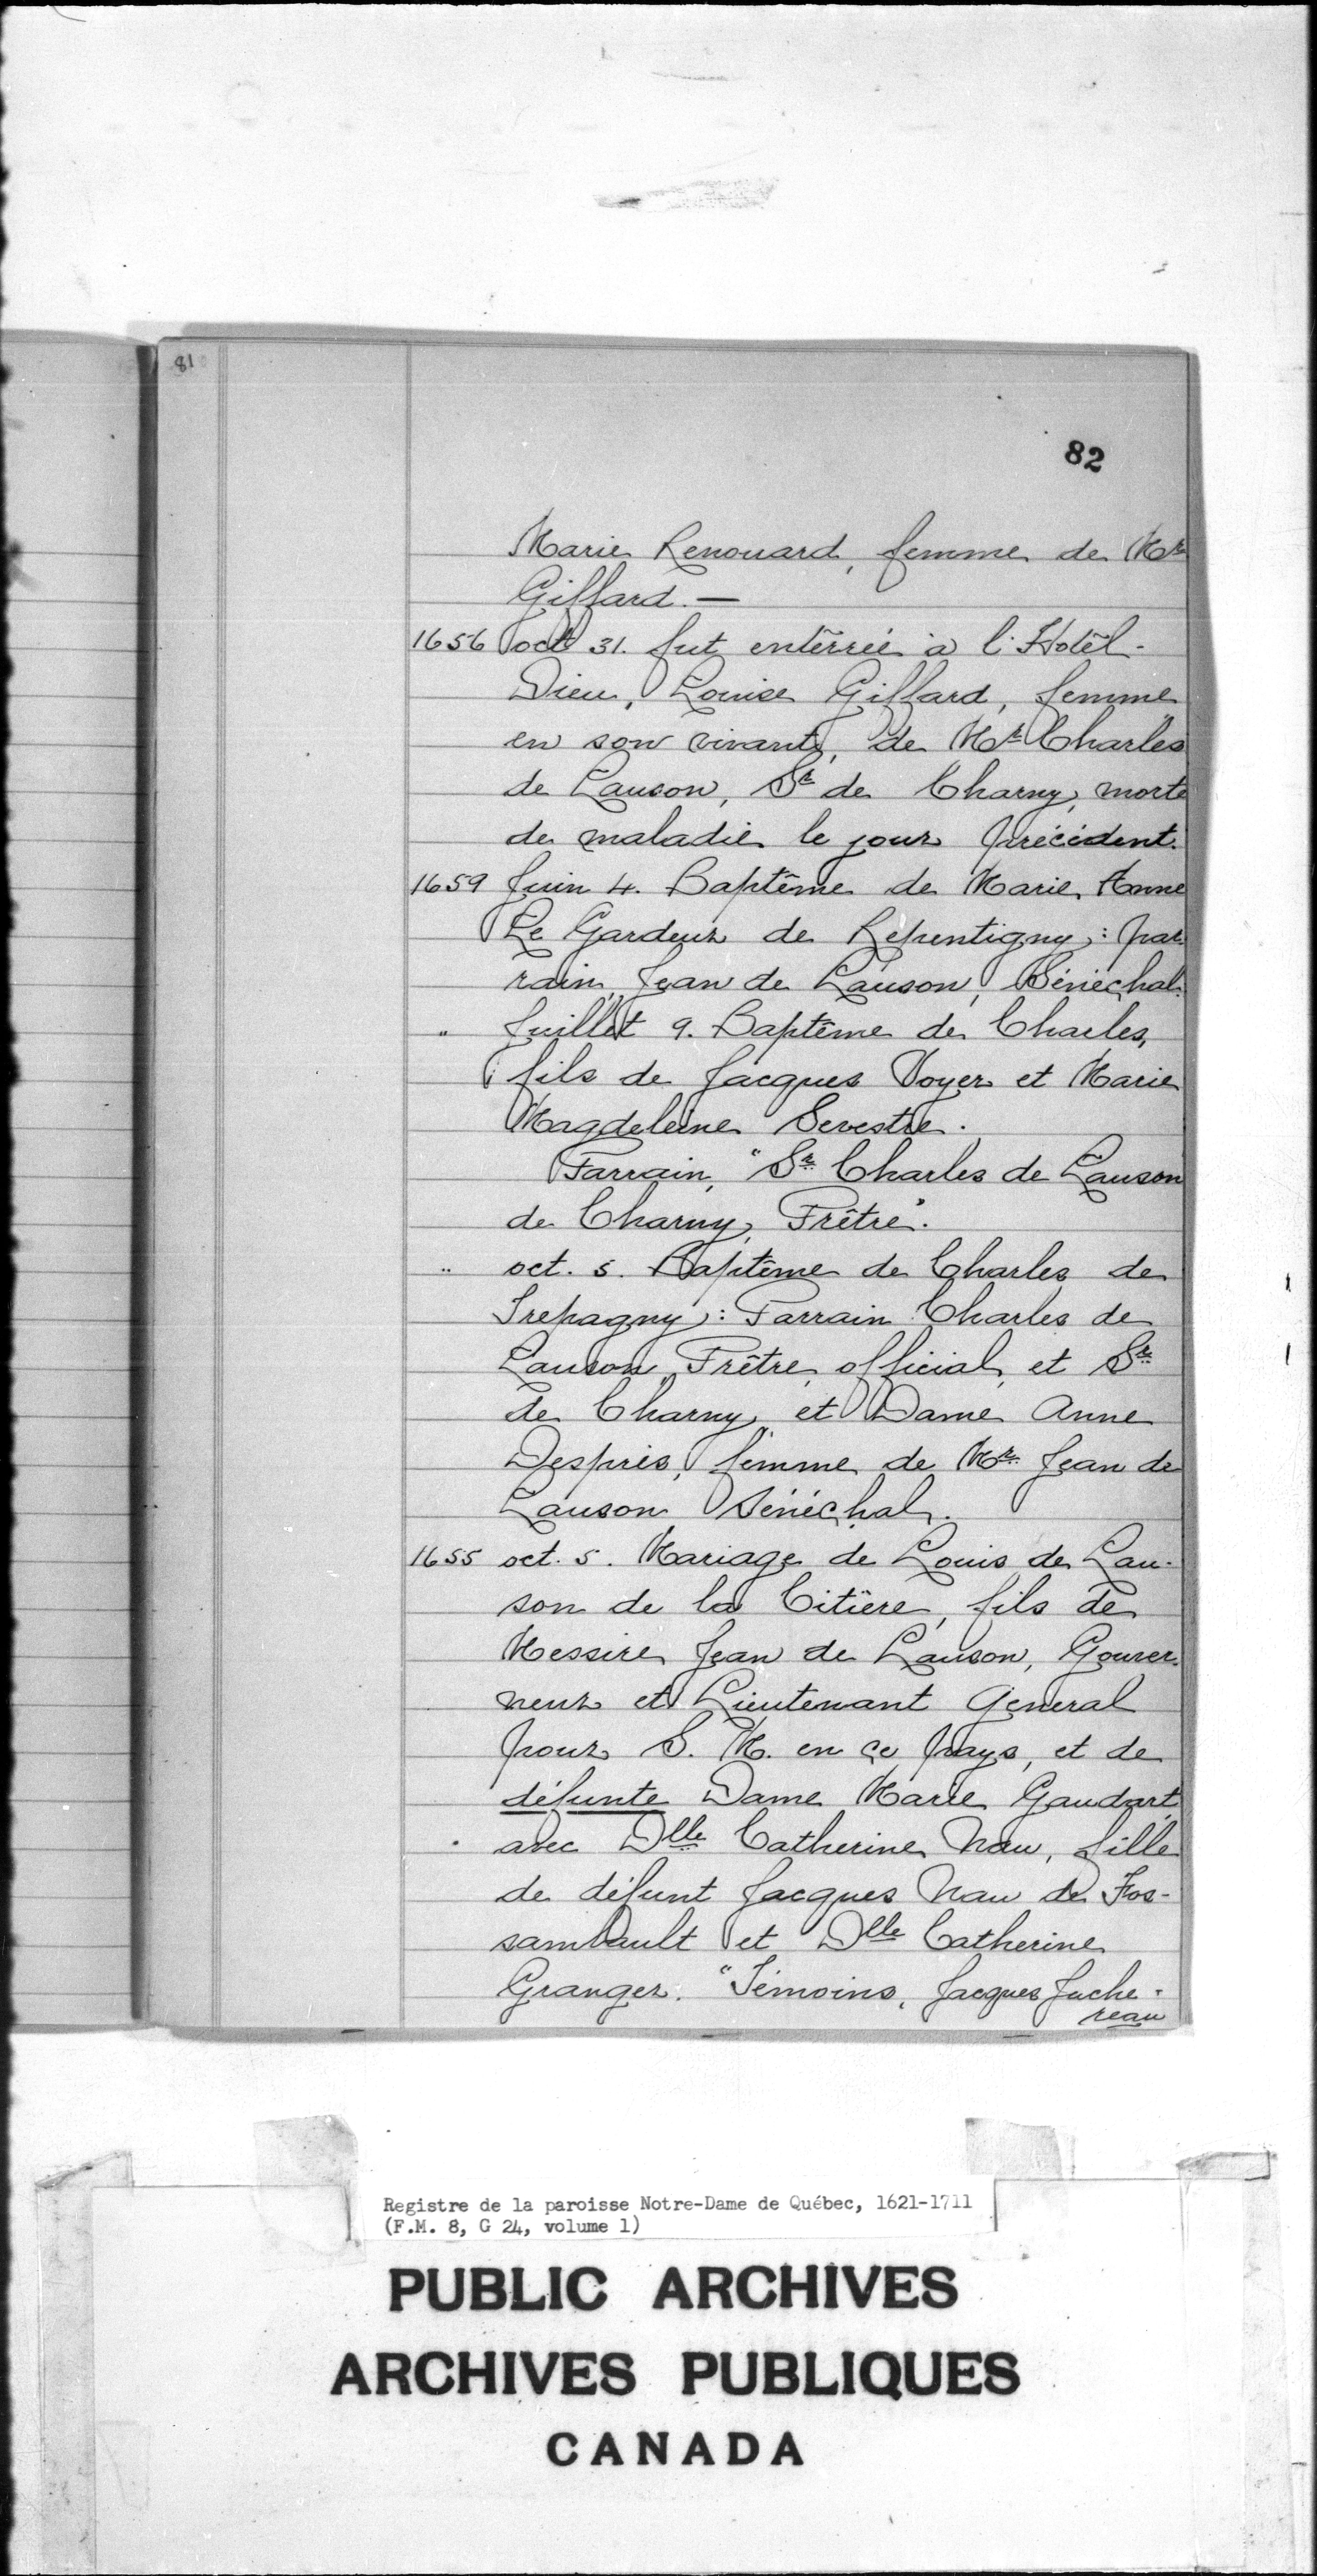 81
82
Marie Renouard, femme de Mr
Giffard. —
1656 oct. 31. fut enterrée à l'Hotel-
Dieu, Louise Giffard, femme
en son vivant, de Mr Charles
de Lauson, Sr de Charny, morte
de maladie le jour précédent.
1659 Juin 4. Baptême de Marie Anne
Le Gardeur de Repentigny : par-
rain, Jean de Lauson, Sénéchal.
" Juillet 9. Baptême de Charles,
fils de Jacques Voyer et Marie
Magdeleine Sevestre.
Parrain, "Sr Charles de Lauson
de Charny, Prêtre".
" oct. 5. Baptême de Charles de
Trepagny : Parrain Charles de
Lauson, Prêtre, official, et Sr
de Charny, et Dame Anne
Desprès, femme de Mr Jean de
Lauson Sénéchal.
1655 oct. 5. Mariage de Louis de Lau-
son de la Citière, fils de
Messire Jean de Lauson, Gouver-
neur et Lieutenant General
pour S. M. en ce pays, et de
défunte Dame Marie Gaudart,
avec Dlle Catherine Nau, fille
de défunt Jacques Nau de Fos-
sambault et Dlle Catherine
Granger. "Témoins, Jacques Juche-
reau
Registre de la paroisse Notre-Dame de Québec, 1621-1711
(F.M. 8, G 24, volume 1)
PUBLIC ARCHIVES
ARCHIVES PUBLIQUES
CANADA